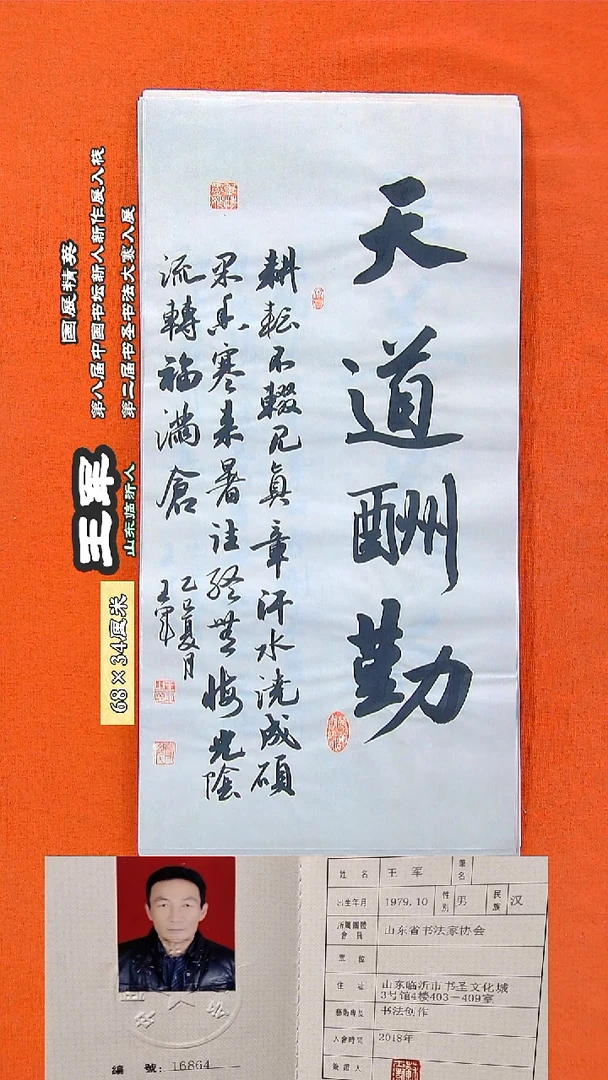 天道酬勤
耕耘不辍见真章汗水浇成硕
果香寒来暑往终无悔光陰
流轉福满倉
乙巳夏月
王军
国展精英
第八届中国书坛新人新作展入展
第二届书圣书法大赛入展
王军
山东临沂人
68×34厘米
编 號: 16864
姓 名 王 军 筆名
出生年月 1979.10 性别 男 民族 汉
所屬團體 會員 山东省书法家协会
住 址 山东临沂市书圣文化城
3号馆4楼403-409室
书法创作
入會時間 2018年